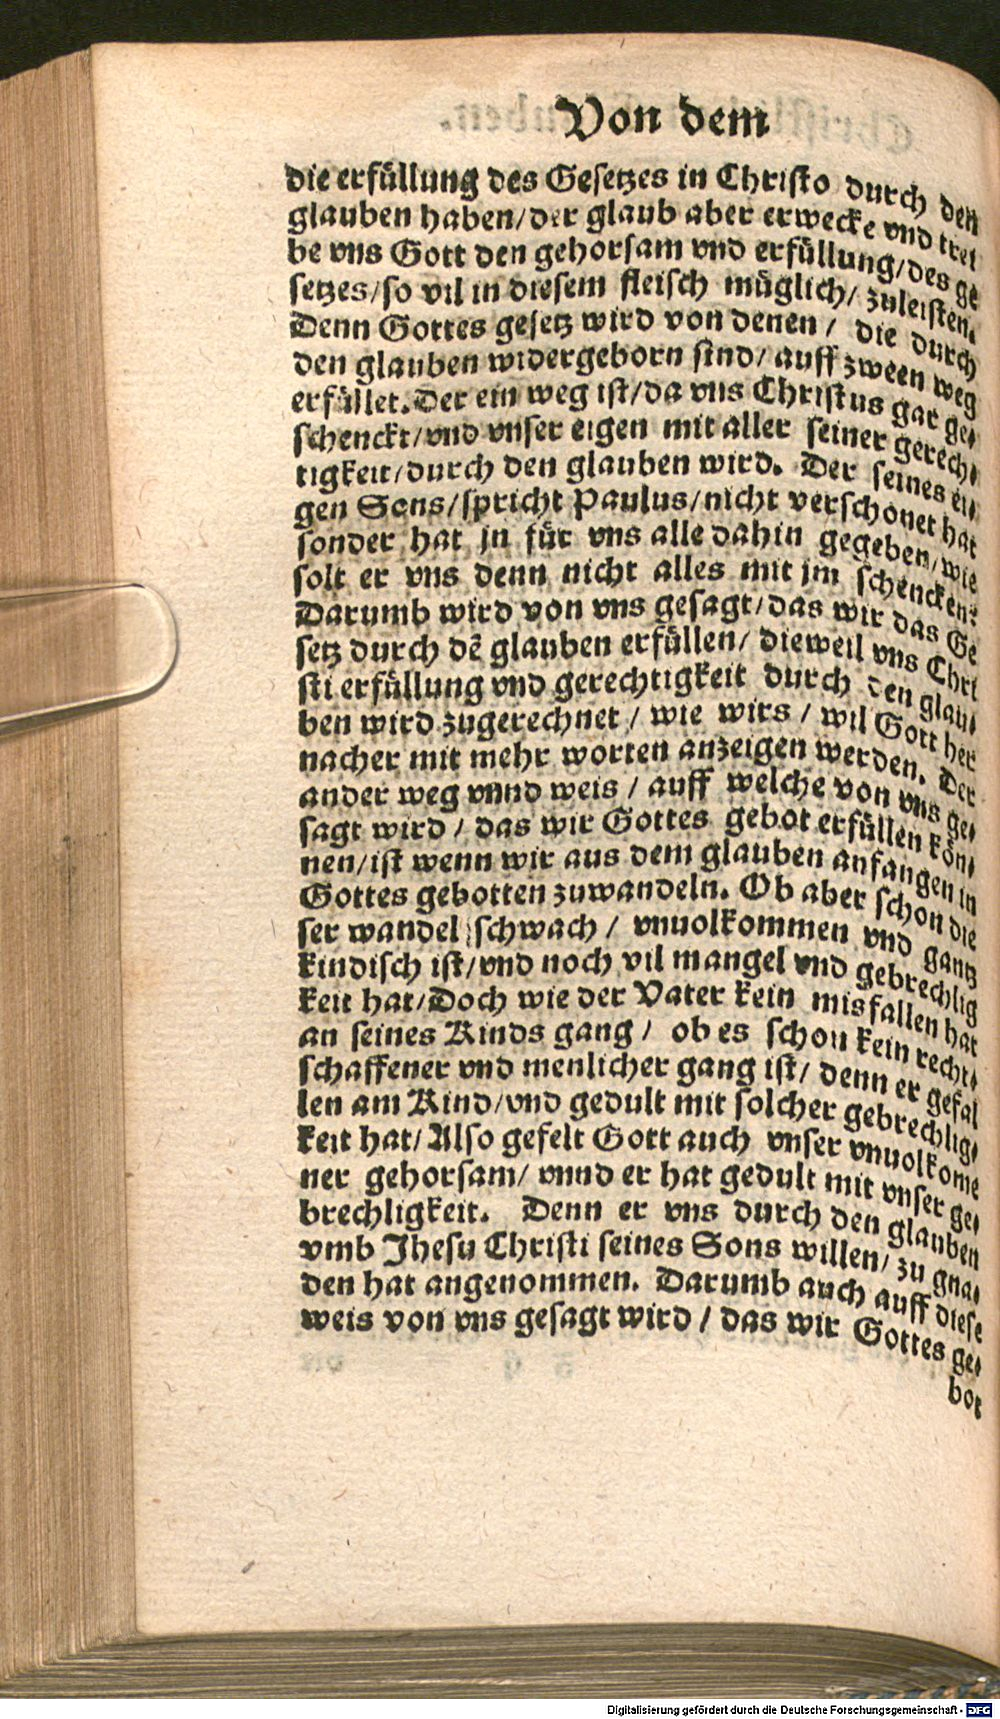 Von dem
die erfüllung des Gesetzes in Christo durch den
glauben haben/der glaub aber erwecke vnd trei
be vns Gott den gehorsam vnd erfüllung/des ge
setzes/so vil in diesem fleisch müglich/ zuleisten.
Denn Gottes gesetz wird von denen / die durch
den glauben widergeborn sind/ auff zween weg
erfüllet. Der ein weg ist/da vns Christus gar ge-
schenckt/vnd vnser eigen mit aller seiner gerech-
tigkeit/durch den glauben wird. Der seines ei-
gen Sons/spricht Paulus/nicht verschonet hat
sonder hat jn für vns alle dahin gegeben/wie
solt er vns denn nicht alles mit jm schencken?
Darumb wird von vns gesagt/das wir das Ge
setz durch dē glauben erfüllen/ dieweil vns Chri
sti erfüllung vnd gerechtigkeit durch den glau-
ben wird zugerechnet / wie wirs / wil Gott her
nacher mit mehr worten anzeigen werden. Der
ander weg vnnd weis / auff welche von vns ge-
sagt wird / das wir Gottes gebot erfüllen kön-
nen/ist wenn wir aus dem glauben anfangen in
Gottes gebotten zuwandeln. Ob aber schon die
ser wandel schwach / vnuolkommen vnd gantz
kindisch ist/vnd noch vil mangel vnd gebrechlig
keit hat/Doch wie der Vater kein misfallen hat
an seines Kinds gang / ob es schon kein recht-
schaffener vnd menlicher gang ist/ denn er gefal
len am Kind/vnd gedult mit solcher gebrechlig-
keit hat/Also gefelt Gott auch vnser vnuolkome
ner gehorsam/ vnnd er hat gedult mit vnser ge-
brechligkeit. Denn er vns durch den glauben
vmb Jhesu Christi seines Sons willen/ zu gna-
den hat angenommen. Darumb auch auff diese
weis von vns gesagt wird / das wir Gottes ge-
bot
Digitalisierung gefördert durch die Deutsche Forschungsgemeinschaft - DFG